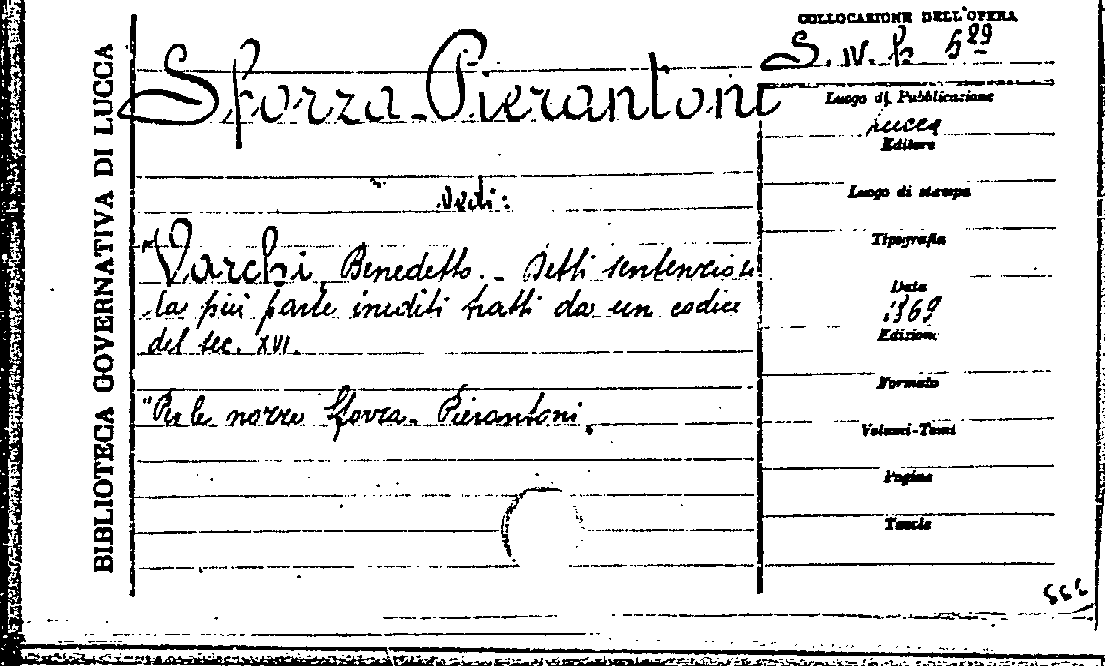 BIBLIOTECA GOVERNATIVA DI LUCCA
Sforza-Pierantoni
Vedi:
Varchi, Benedetto. - Detti sentenziosi
la più parte inediti tratti da un codice
del sec. XVI.
"Per le nozze Sforza-Pierantoni.
COLLOCAZIONE DELL'OPERA
S. IV. b. 529
Luogo di Pubblicazione
Lucca
Editore
Luogo di stampa
Tipografia
Data
1869
Edizione
Formato
Volumi-Tomi
Pagine
Tavole